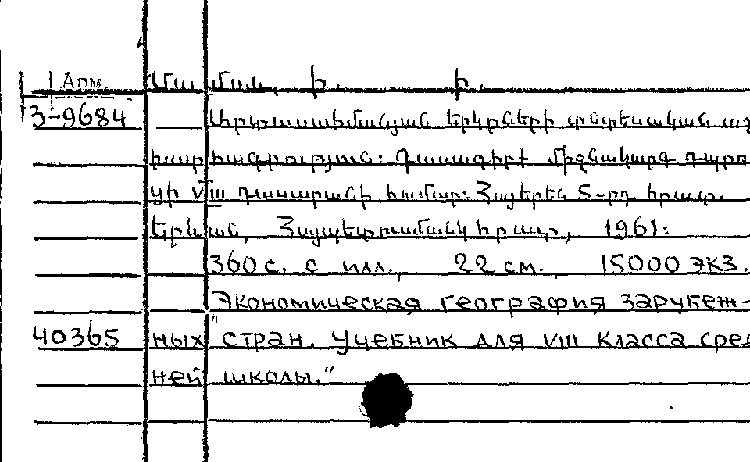 Арм. Մա
3-9684 Արտասահմանյան երկրների տնտեսական աշ
խարհագրություն: Դասագիրք միջնակարգ դպրո
ցի VIII դասարանի համար: Հայերեն 5-րդ հրատ.
Երևան, Հայպետուսմանկհրատ, 1961:
360 с. с илл., 22 см., 15000 экз.
Экономическая география зарубеж-
40365 ных" стран. Учебник для VIII класса сред
ней школы."